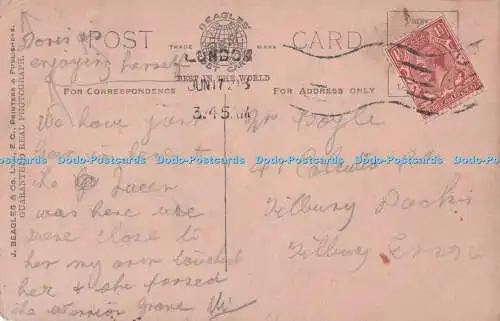 Doris is
enjoying herself
POST CARD
BEAGLES'
TRADE MARK
BEST IN THE WORLD
LONDON
JUN 17
3.45
FOR CORRESPONDENCE
FOR ADDRESS ONLY
J. BEAGLES & CO., LTD., E.C., PRINTERS & PUBLISHERS.
GUARANTEED REAL PHOTOGRAPH.
We have just
been in
the Queen
was here we
were close to
her my arm touched
her & she passed
the warrior grave
Mr Boyle
41 Calcutta Rd
Tilbury Docks
Tilbury Essex
Dodo-Postcards Dodo-Postcards Dodo-Postcards Dodo-Postcards Dodo-Postcards